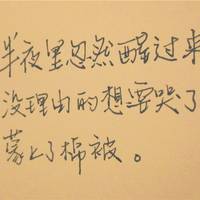 半夜里忽然醒过来
没理由的想要哭了
蒙上了棉被。